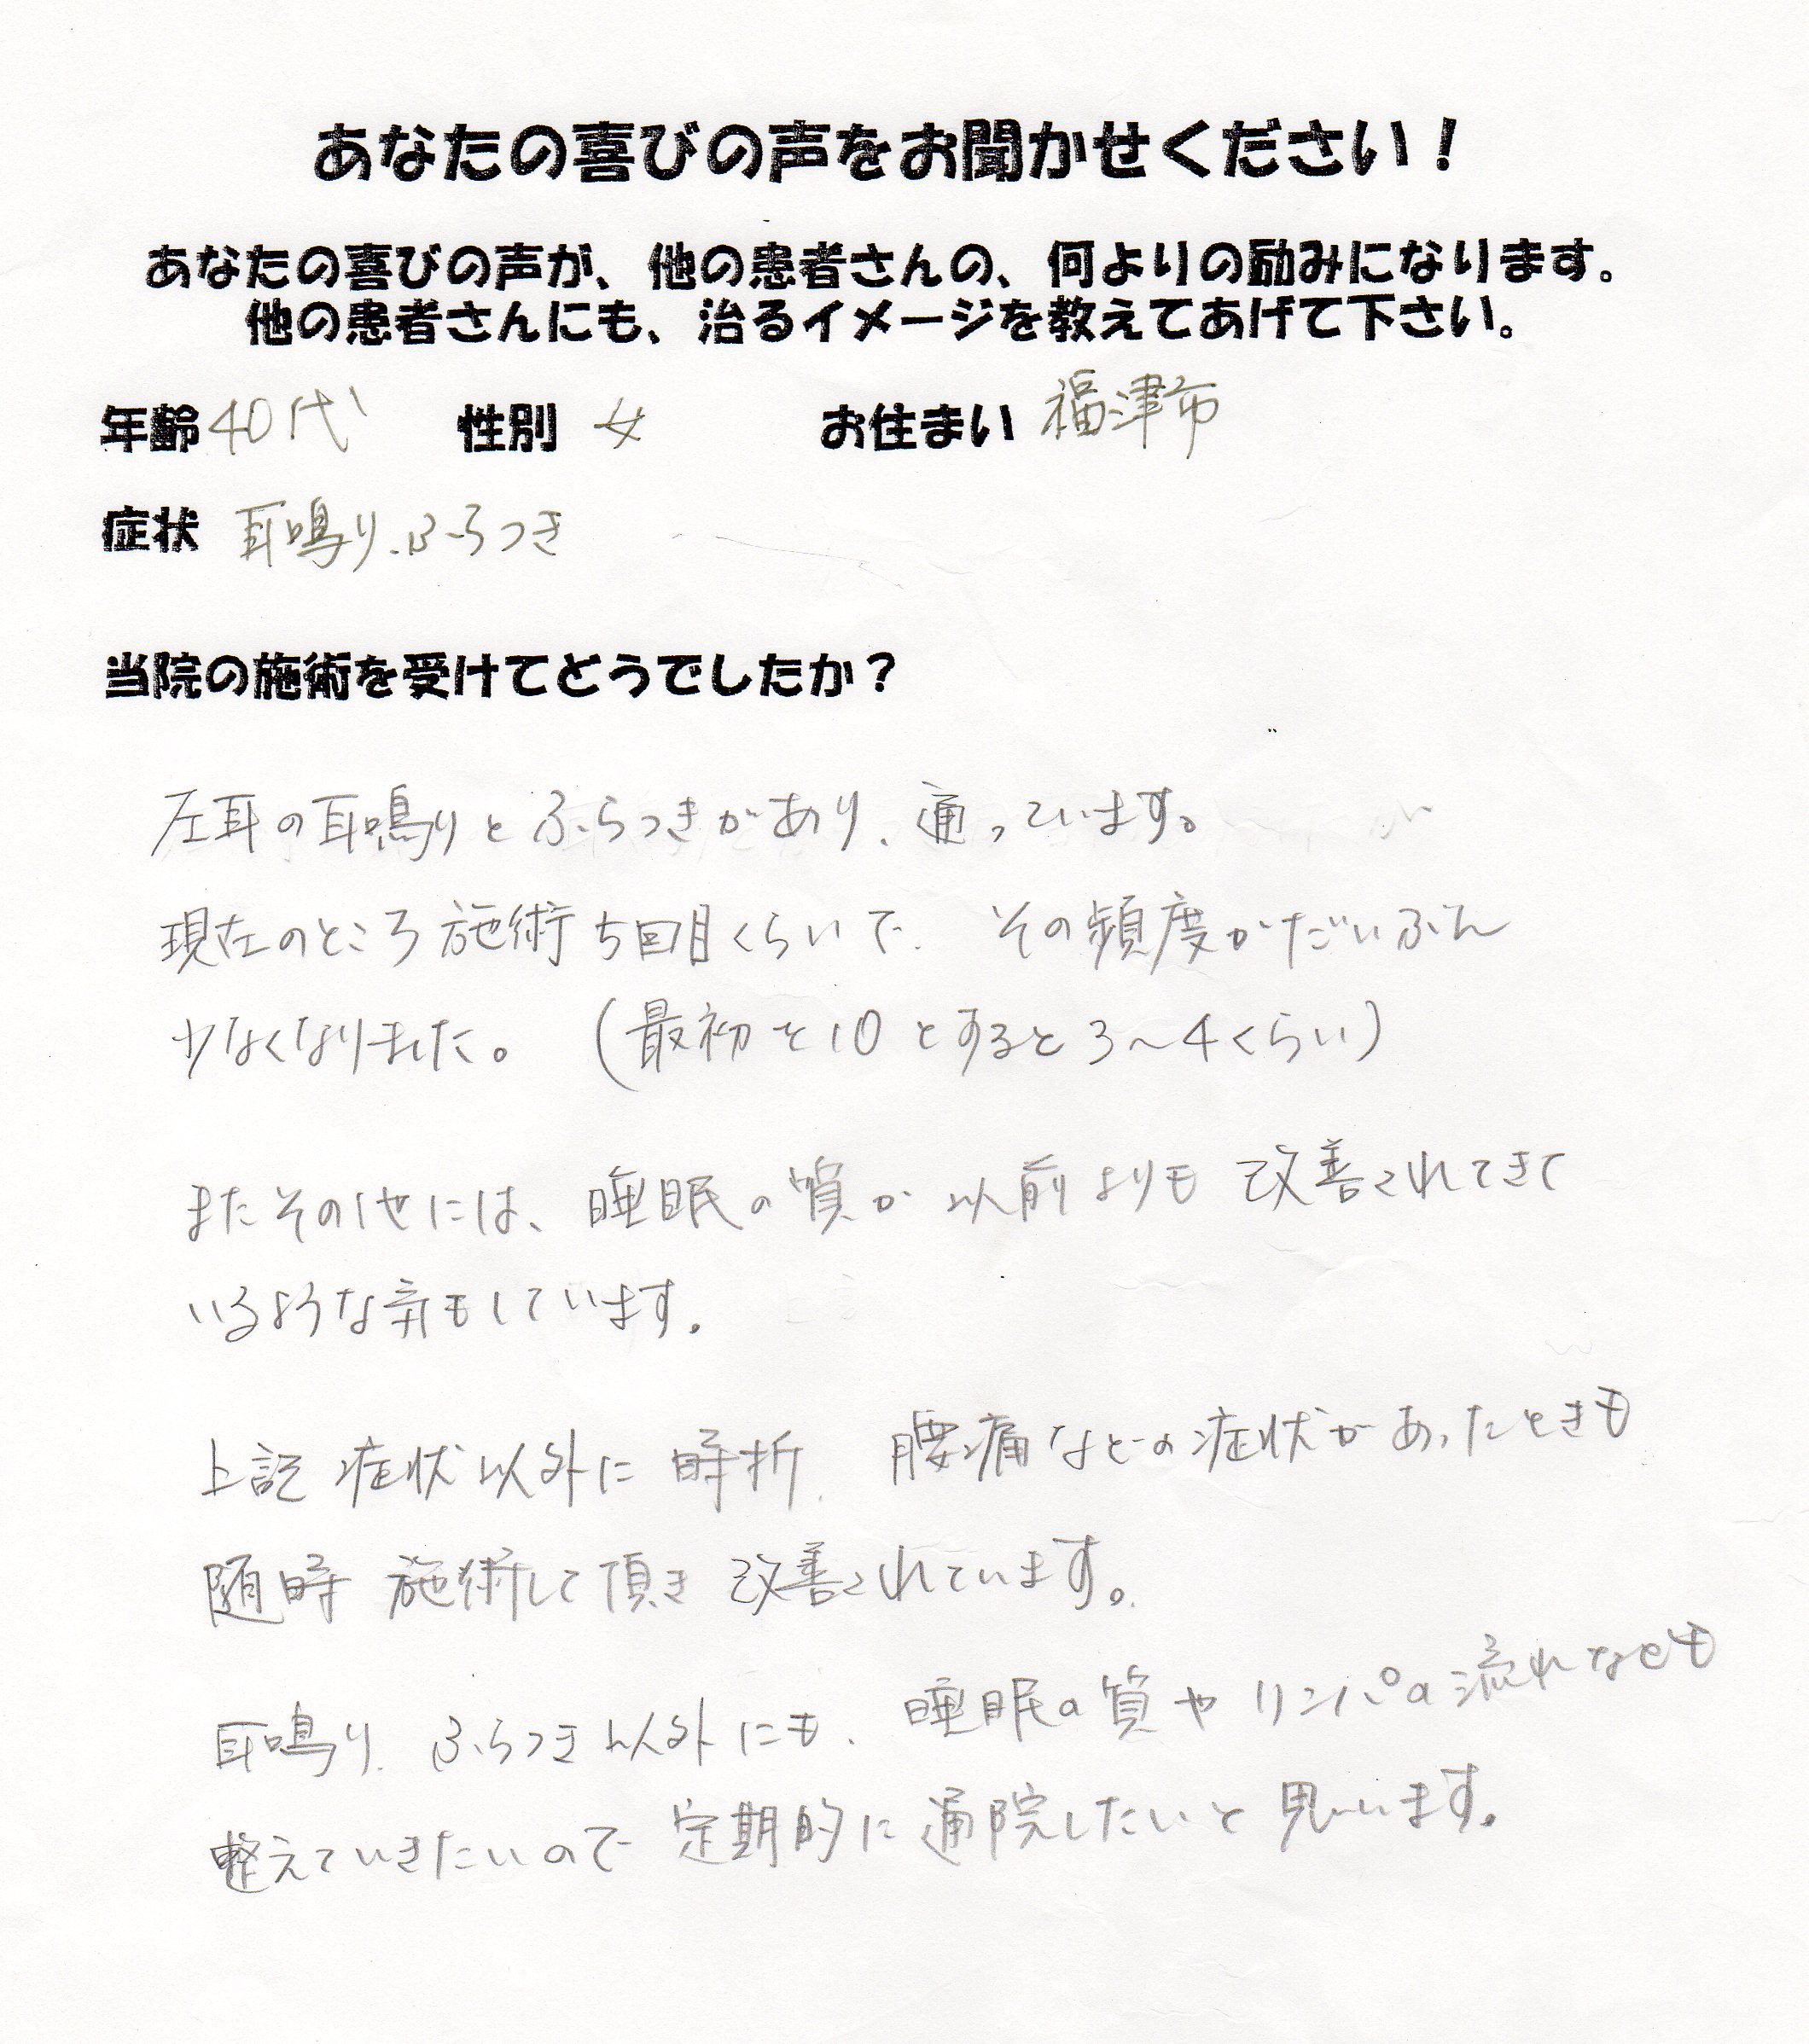 あなたの喜びの声をお聞かせください！
あなたの喜びの声が、他の患者さんの、何よりの励みになります。
他の患者さんにも、治るイメージを教えてあげて下さい。
年齢 40代 性別 女 お住まい 福津市
症状 耳鳴り、ふらつき
当院の施術を受けてどうでしたか？
左耳の耳鳴りとふらつきがあり、通っています。
現在のところ施術5回目くらいで、その頻度がだいぶん
少なくなりました。（最初を10とすると3～4くらい）
またその他には、睡眠の質が以前よりも改善されてきて
いるような気もしています。
上記症状以外に時折、腰痛などの症状があったときも
随時施術して頂き改善されています。
耳鳴り、ふらつき以外にも、睡眠の質やリンパの流れなども
整えていきたいので定期的に通院したいと思います。